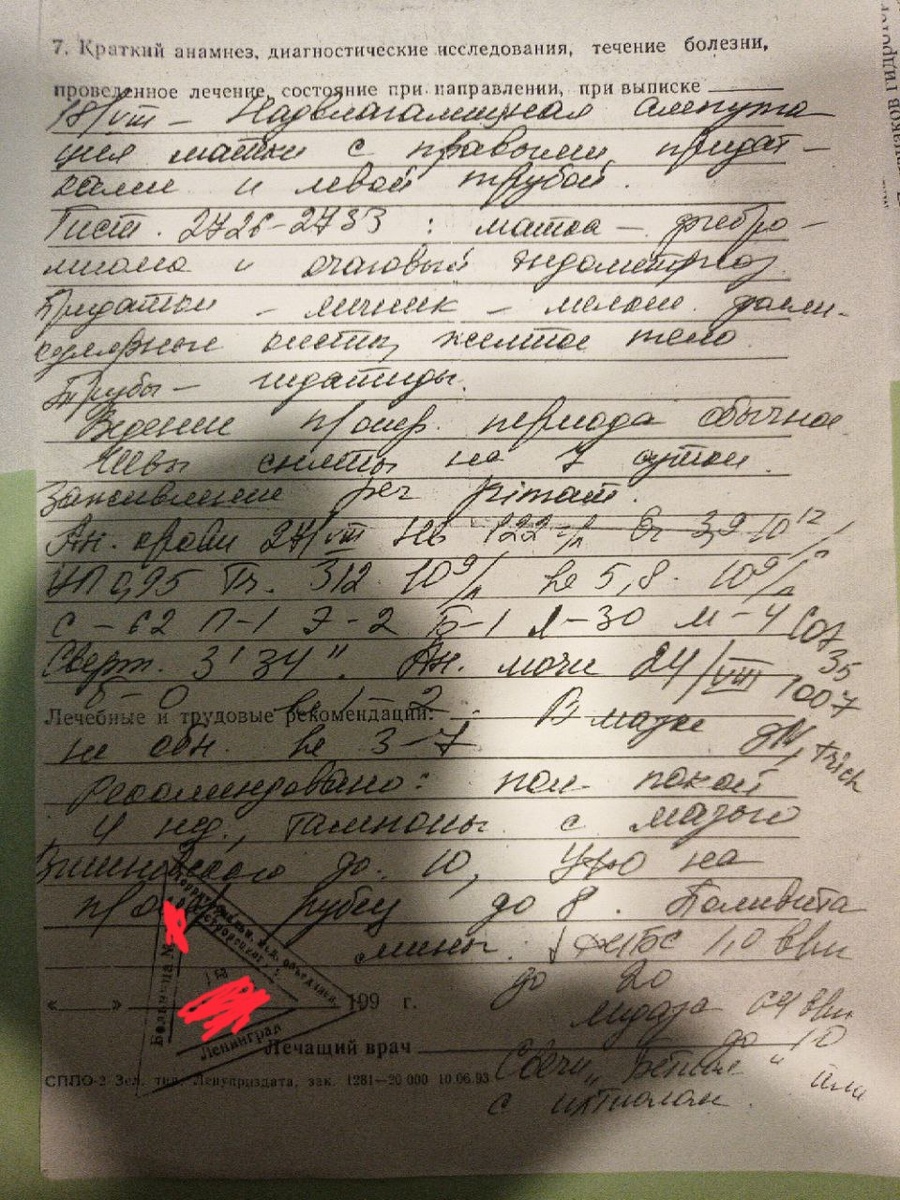 7. Краткий анамнез, диагностические исследования, течение болезни,
проведенное лечение, состояние при направлении, при выписке
18/VIII – Надвлагалищная ампута-
ция матки с правыми придат-
ками и левой трубой.
Гист. 2726-2733 : матка – фибро-
миома и очаговый эндометриоз
Придатки – яичник – мелкие фолли-
кулярные кисты, желтое тело
Трубы – гидатиды.
Ведение п/опер. периода обычное
Швы сняты на 7 сутки.
Заживление per primam.
Ан. крови 27/VIII Нb 122 г/л Er 3,9 10¹²/л
ЦП 0,95 Тr. 312 10⁹/л Le 5,8 · 10⁹/л
С – 62 П-1 Э-2 Б-1 Л-30 М-4 СОЭ 35
Сверт. 3' 34" Ан. мочи 24/VIII 1007
б – 0 Le 1 – 2 В мазке gN, trich
Лечебные и трудовые рекомендации:
не обн. Le 3-7
Рекомендовано: пол покой
4 нед., тампоны с мазью
Вишневского до 10, УФО на
рубец до 8. Поливита
мины. ФиБС 1,0 в/м
до 20
лидаза 64 в/м
до 10
Свечи „ Бетиол " или
с ихтиолом.
« » 199 г.
Больница №
Ленинград
Лечащий врач
СППО-2 Зел. тип. Ленуприздата, зак. 1281—20 000 10.06.93